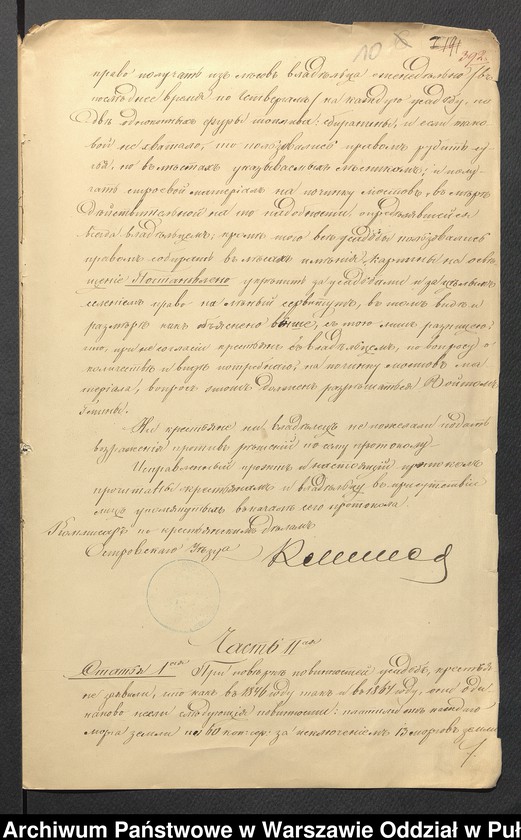 10 392
право получать изъ лѣсовъ владѣльца еженедѣльно /въ
лѣтнее время по четвергамъ/ на каждую усадьбу, по
фуры топлива: сбирашины, и если тако-
вой не хватало, то пользовались правомъ рубить су-
чья, но въ мѣстахъ указываемыхъ лѣсникомъ; и полу-
чать строевой матеріалъ на починку мостовъ, въ мѣрѣ
дѣйствительной на то надобности опредѣлявшейся
всегда владѣльцемъ; кромѣ того всѣ усадьбы пользовались
правомъ собирать въ лѣсахъ имѣнія на освѣ-
щеніе Постановлено укрѣпить за усадьбами и за цѣлымъ
селеніемъ право на лѣсный сервитутъ, въ томъ видѣ и
размѣрѣ какъ объяснено выше, съ тою лишь разницею
что, при не согласіи крестьянъ съ владѣльцемъ, по вопросу о
количествѣ и видѣ потребнаго на починку мостовъ ма-
теріала, вопросъ этотъ долженъ разрѣшаться Войтомъ
гмины.
Ни крестьяне ни владѣлецъ не пожелали подать
возраженія противъ рѣшеній по сему протоколу.
Исправленный проектъ и настоящій протоколъ
прочитаны крестьянамъ и владѣльцу въ присутствіи
лицъ упомянутыхъ въ началѣ сего протокола.
Коммисаръ по крестьянскимъ дѣламъ
Островскаго Уѣзда
Часть II ая
Статья 1 ая При повѣркѣ повинностей усадебъ, крестья-
не заявили, что какъ въ 1846 году такъ и въ 1864 году, они оди-
наково несли слѣдующія повинности: платили отъ каждаго
морга земли по 60 коп. за исключеніемъ 13 морговъ земли
Archiwum Państwowe w Warszawie Oddział w Puł